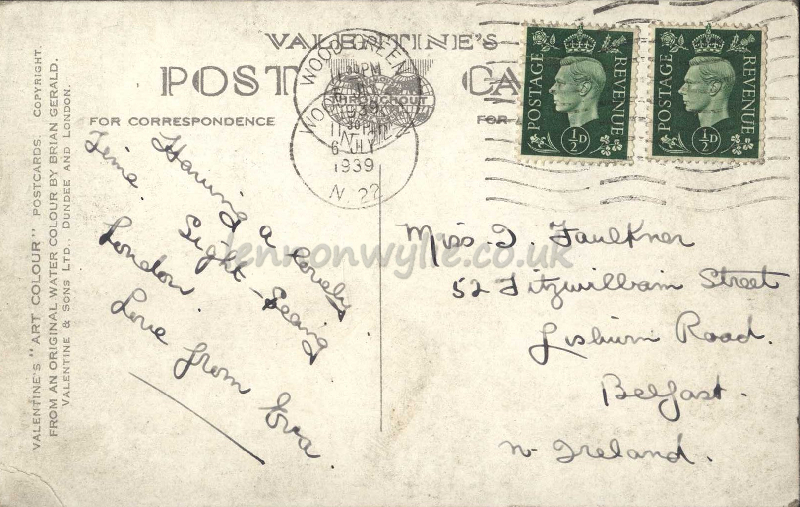 VALENTINE'S
POST CA
FOR CORRESPONDENCE
FOR
WOOD GREEN
THROUGHOUT
11 30 PM
6 JLY
1939
N. 22
POSTAGE REVENUE
½D
POSTAGE REVENUE
½D
VALENTINE'S "ART COLOUR" POSTCARDS. COPYRIGHT.
FROM AN ORIGINAL WATER COLOUR BY BRIAN GERALD.
VALENTINE & SONS LTD. DUNDEE AND LONDON.
Having a lovely
Time Sight-Seeing
London.
Love from Eva.
Miss. J. Faulkner
52 Fitzwilliam Street
Lisburn Road.
Belfast.
N-Ireland.
lennonwylie.co.uk